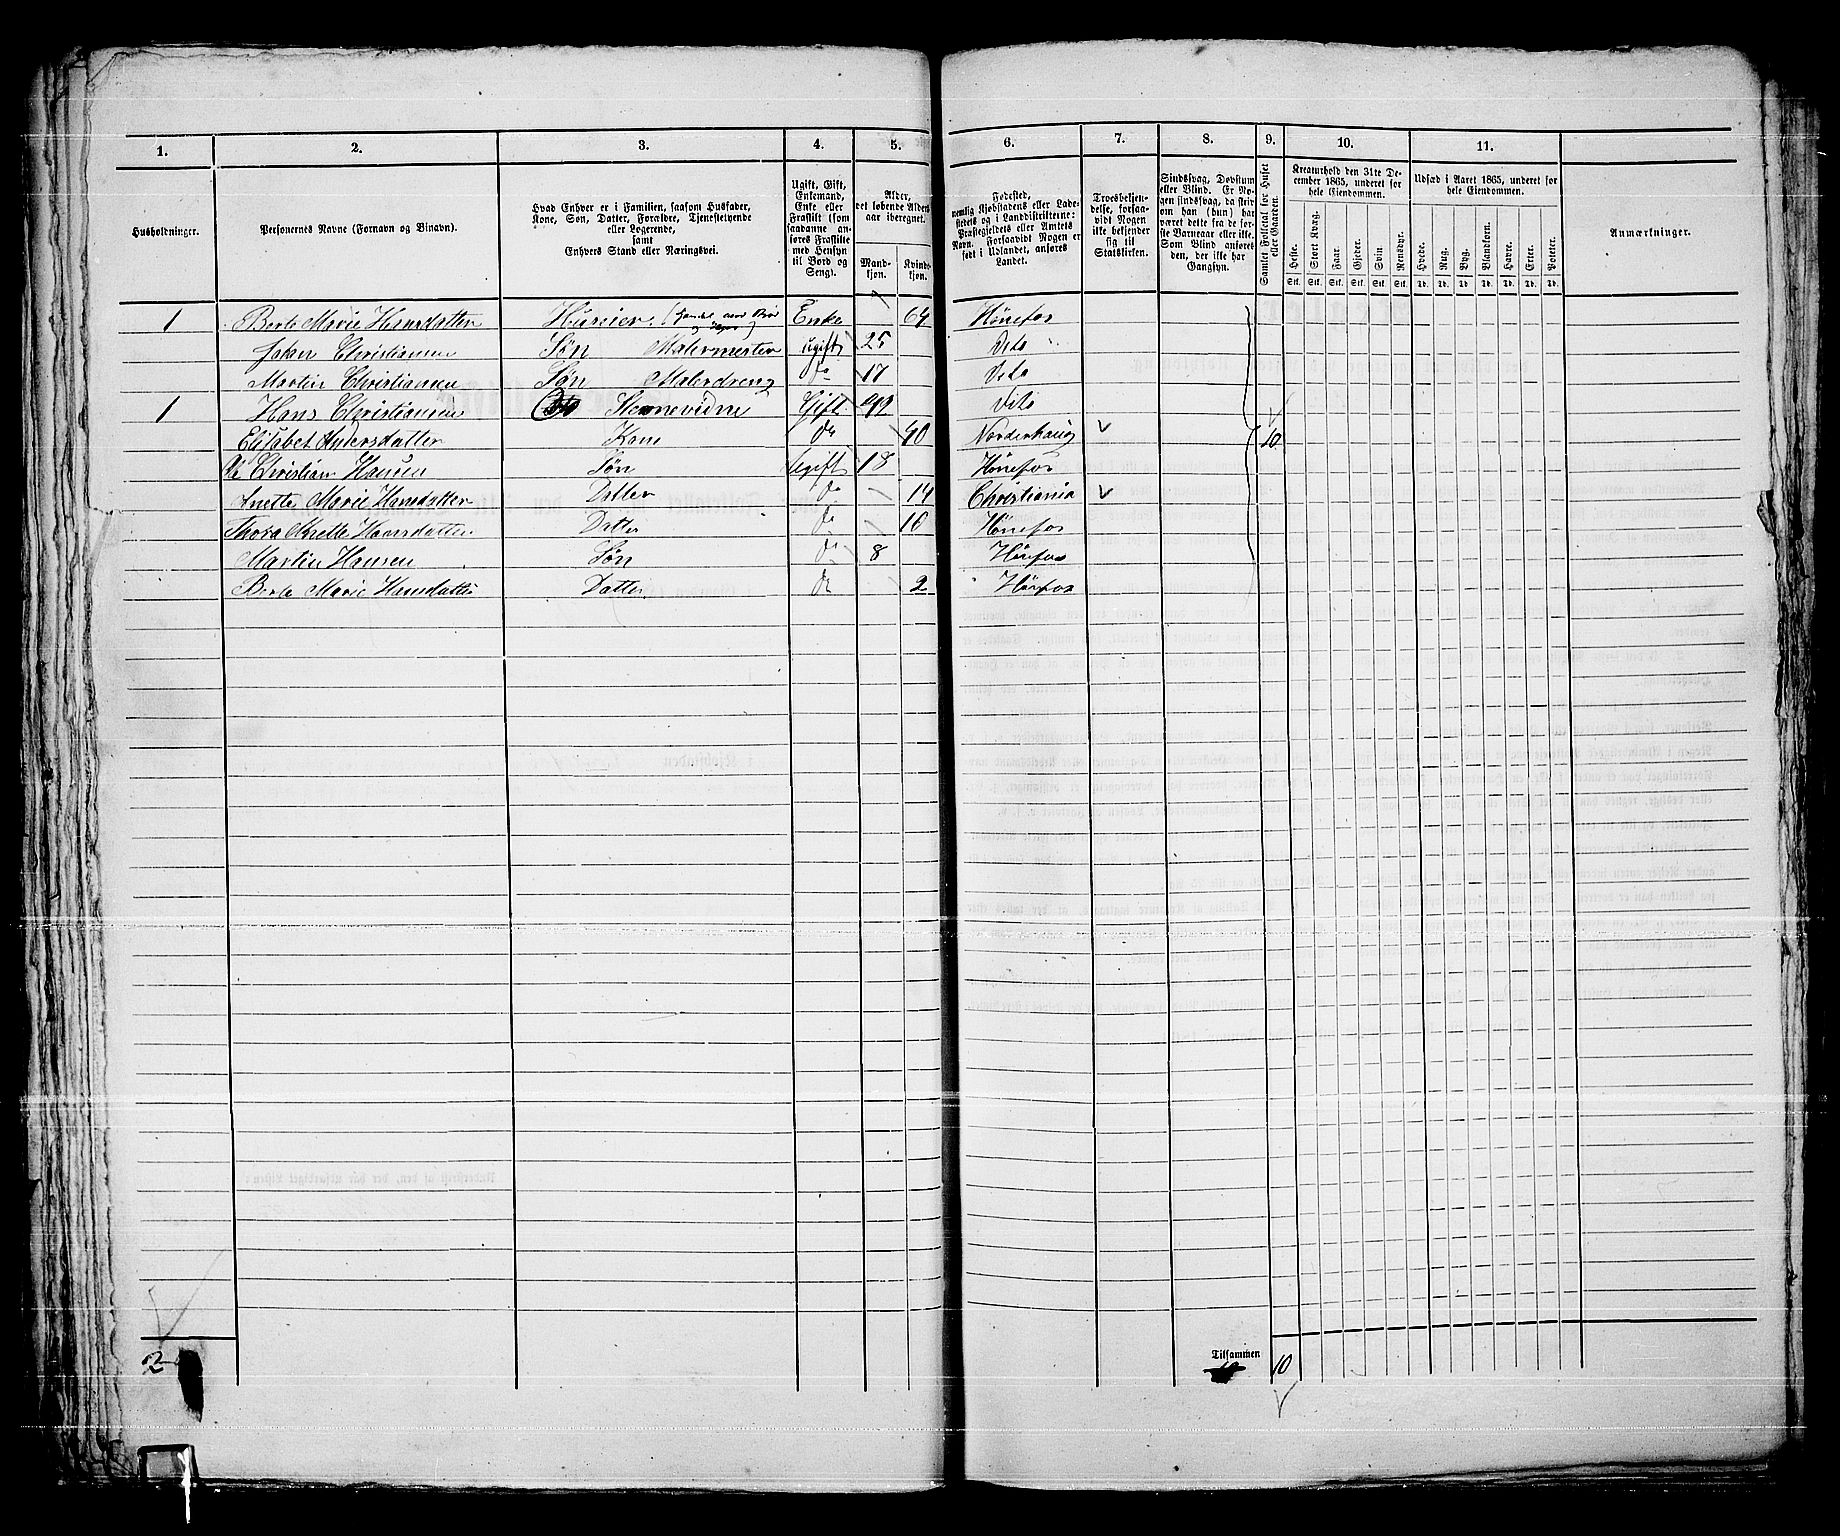 1. 2. 3. 4. 5. 6. 7. 8. 9. 10. 11.
Husholdninger.
Personernes Navne (Fornavn og Binavn).
Hvad Enhver er i Familien, saasom Husfader,
Kone, Søn, Datter, Forældre, Tjenestetyende
eller Logerende,
samt
Enhvers Stand eller Næringsvei.
Ugift, Gift,
Enkemand,
Enke eller
Fraskilt (som
saadanne an-
føres Fraskilte
med Hensyn
til Bord og
Seng).
Alder,
det løbende Alders-
aar iberegnet.
Mand-
kjøn.
Kvind-
kjøn.
Fødested,
nemlig Kjøbstadens eller Lade-
stedets og i Landdistrikterne:
Præstegjeldets eller Amtets
Navn. Forsaavidt Nogen er
født i Udlandet, anføres
Landet.
Troesbekjen-
delse, forsaa-
vidt Nogen
ikke bekjender
sig til
Statskirken.
Sindssvag, Døvstum
eller Blind. Er No-
gen sindssvag, da skriv
om han (hun) har
været dette fra de før-
ste Barneaar eller ikke.
Som Blind anføres
den, der ikke har
Gangsyn.
Samlet Folketal for Huset
eller Gaarden.
Kreaturhold den 31te De-
cember 1865, underet for
hele Eiendommen.
Heste. Stort Kvæg. Faar. Gjeder. Svin Rensdyr.
Stk. Stk. Stk. Stk. Stk. Stk.
Udsæd i Aaret 1865, underet for
hele Eiendommen.
Hvede. Rug. Byg. Blandkorn. Havre. Erter. Poteter.
Td. Td. Td. Td. Td. Td. Td.
Anmærkninger.
1 Berte Marie Hansdatter Huseier. Enke 64 Hönefos
Johan Christiansen Søn Malermester ugift 25 Dito
Martin Christiansen Søn Malerdreng do 17 Dito
1 Hans Christiansen Gift 42 Dito
Elisabet Andersdatter Kone do 40 Norderhaug 10
Christian Hansen Søn Ugift 18 Hönefos
Anette Marie Hansdatter Datter do 14 Christiania
Thora Hansdatter Datter do 10 Hönefos
Martin Hansen Søn do 8 Hönefos
Berte Marie Hansdatter Datter do 2 Hönefos
2
Tilsammen
10 10